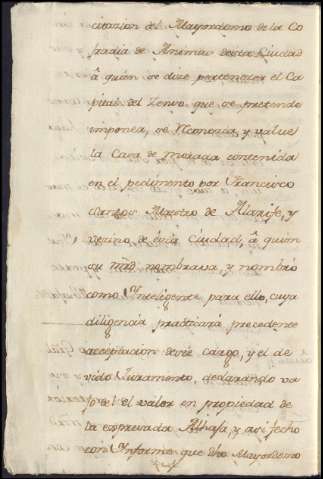 citacion del Mayordomo de la Co
fradia de Animas de esta Ciudad
â quien se dize pertenecer el Ca
pital del Zenso que se pretende
imponer, se reconosca, y value
la Casa de morada contenida
en el pedimento por Francisco
Santos Maestro de Alarife, y
vezino de esta Ciudad, â quien
su mrd nombrava, y nombrò
como Inteligente para ello, cuya
diligencia practicarà precedente
aceptacion de este cargo, y el de
vido Juramento, declarando va
jo de el el valor en propiedad de
la expresada Alhaja, y assi fecho
con Informe que dho Mayordomo